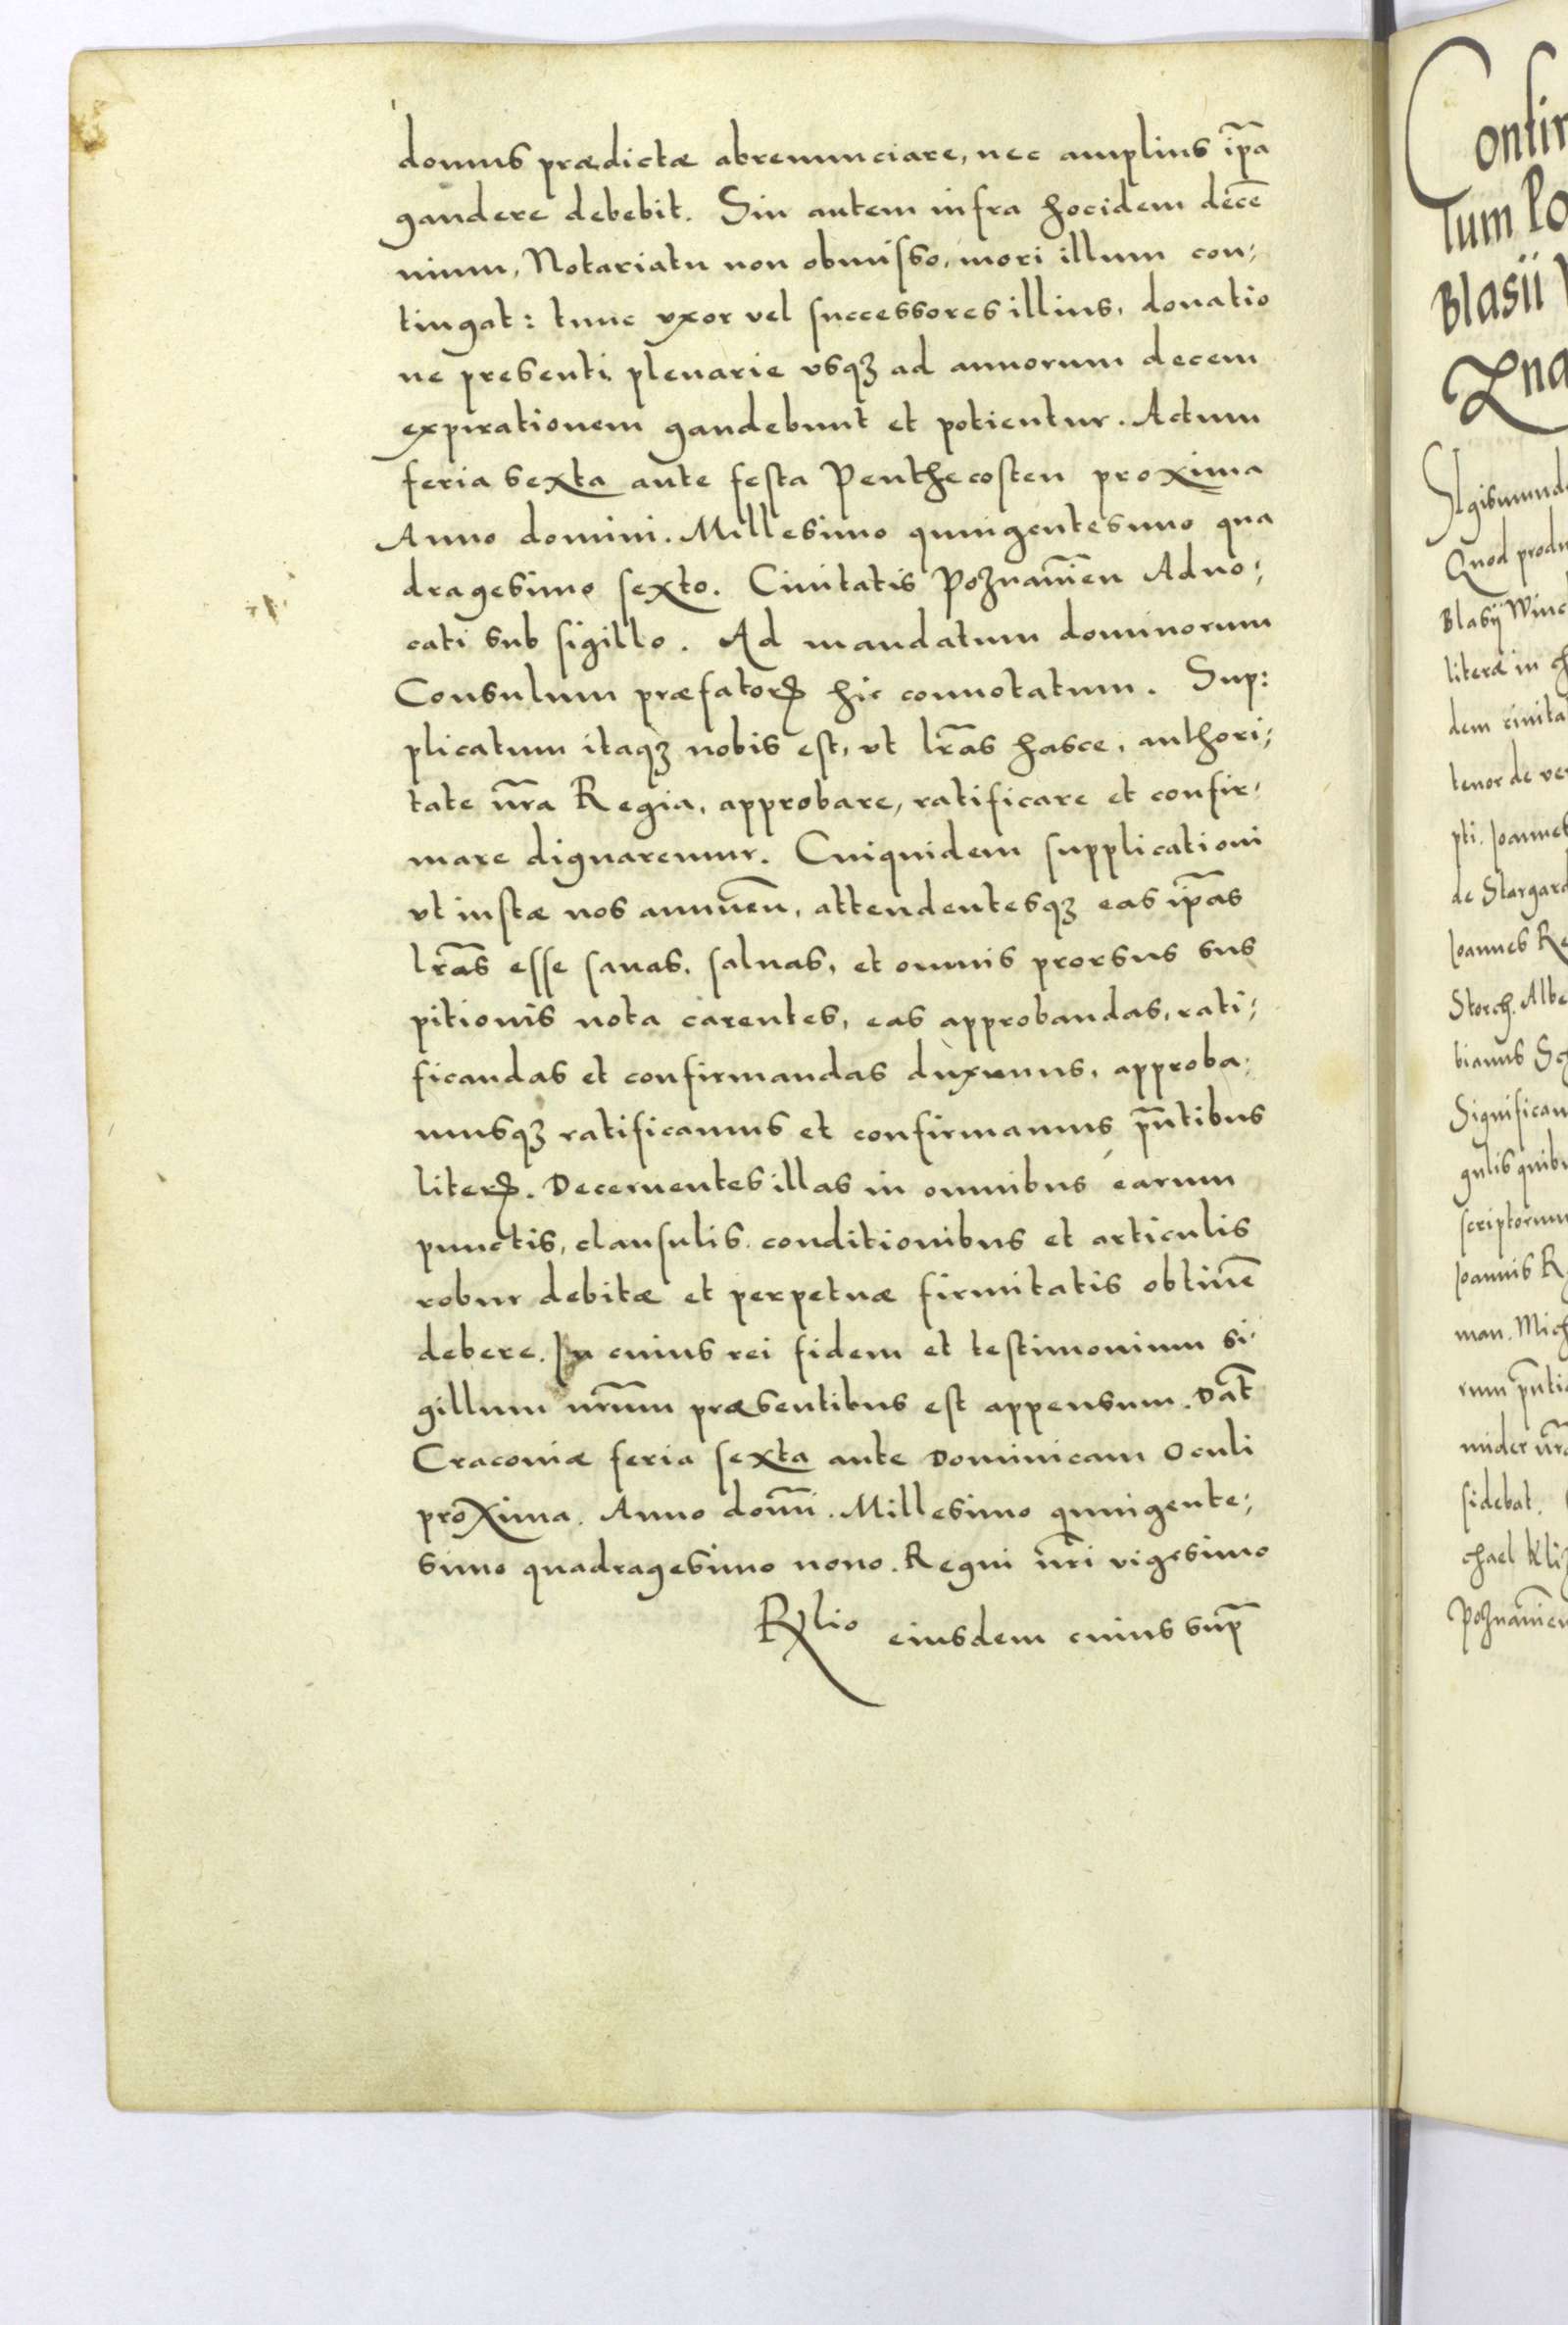 domus prædictæ abrenunciare, nec amplius ip̃a
gaudere debebit. Sin autem infra hocidem decē
nium, Notariatu non obmisso, mori illum con;
tingat: tunc vxor vel successores illius, donatio
ne presenti plenarie vsqꝫ ad annorum decem
expirationem gaudebunt et potientur. Actum
feria sexta ante festa Penthecosten proxima
Anno domini. Millesimo quingentesimo qua
dragesimo sexto. Ciuitatis Poznanien̄ Aduo;
cati sub sigillo. Ad mandatum dominorum
Consulum præfatorꝝ hic connotatum. Sup:
plicatum itaqꝫ nobis est, vt lr̃as hasce, authori;
tate nr̃a Regia, approbare, ratificare et confir,
mare dignaremur. Cuiquidem supplicationi
vt iustæ nos annuen̄, attendentesqꝫ eas ip̃as
lr̃as esse sanas, saluas, et omnis prorsus sus
pitionis nota carentes, eas approbandas, rati;
ficandas et confirmandas duximus, approba,
musqꝫ ratificamus et confirmamus pn̄tibus
literꝝ. Decernentes illas in omnibus earum
punctis, clausulis conditionibus et articulis
robur debitæ et perpetuæ firmitatis obtinē
debere. In cuius rei fidem et testimonium si,
gillum nr̃um præsentibus est appensum. Dat̄
Cracouiæ feria sexta ante Dominicam Oculi
proxima. Anno domī. Millesimo quingente;
simo quadragesimo nono. Regni nr̃i vigesimo
Rlio eiusdem cuius sup̄
Confir
tum Po
Blasii
Zna
Sigismund
Quod produ
Blasij Winc
literæ in
dem ciuita
tenor de ver
pti. Joannes
de Stargard
Joannes Re
Storch. Albe
bianus
Significam
gulis quibu
scriptorum
Joannis R
man. Mich
rum pn̄ti
nr̃a
sidebat.
chael
Poznanien